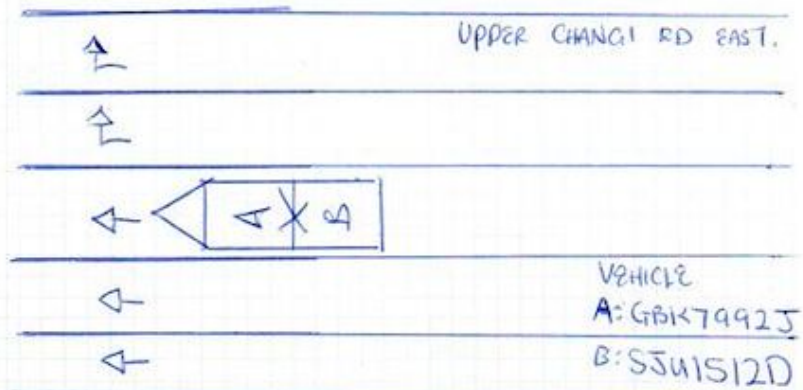 UPPER CHANGI RD EAST.
A
B
VEHICLE
A: GBK7992J
B: SJU1512D